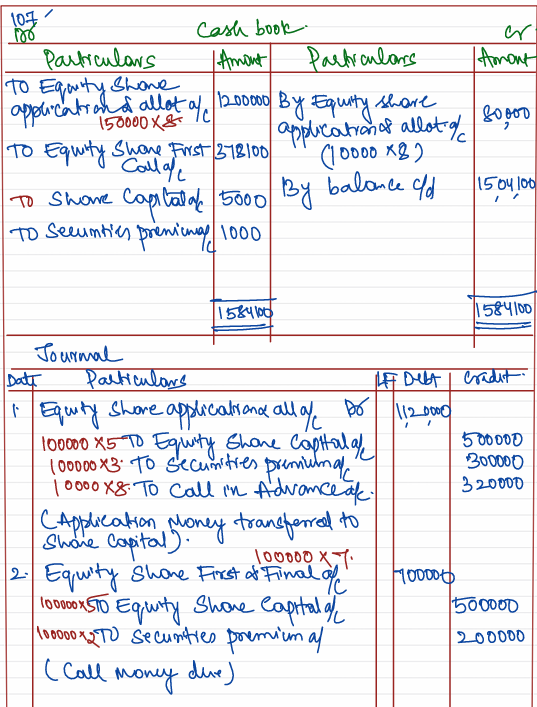 107 ✓
Dr Cash book Cr
Particulars Amount Particulars Amount
To Equity Share
application & allot a/c 1200000
150000 x 8
By Equity share
application & allot a/c 80,000
(10000 x 8)
To Equity Share First 378100
Call a/c
To Share Capital a/c 5000
By balance c/d 1504100
To Securities premium a/c 1000
1584100 1584100
Journal
Date Particulars LF Debt Credit
1. Equity Share application & all a/c Dr 112,000
100000 x 5 To Equity Share Capital a/c 500000
100000 x 3. To Securities premium a/c 300000
10000 x 8. To Call in Advance a/c. 320000
(Application Money transferred to
Share Capital).
100000 x 7.
2. Equity Share First & Final a/c 700000
100000 x 5 To Equity Share Capital a/c 500000
100000 x 2 To Securities premium a/ 200000
(Call money due)